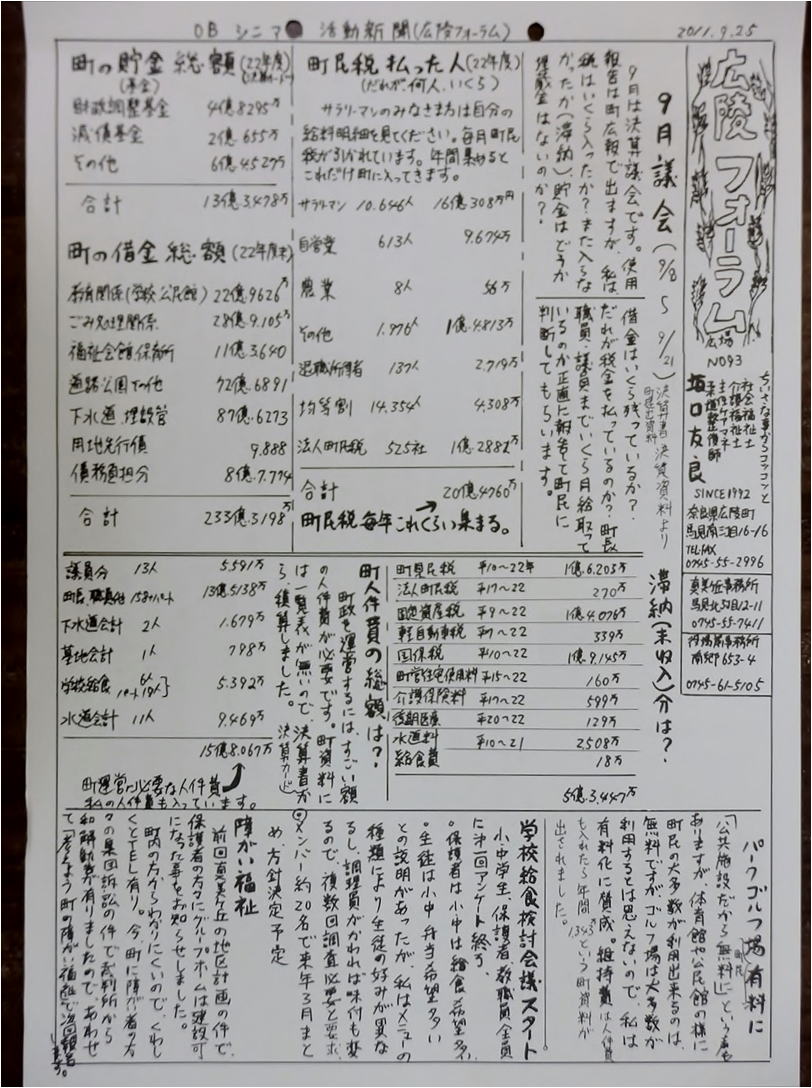 OB シニア 活動新聞(広陵フォーラム)
2011.9.25
広陵フォーラム
広場
NO93
ちいさな事からコツコツと
社会福祉士
介護福祉士
主任ケアマネ
柔道整復師
坂口友良
SINCE1992
奈良県広陵町
馬見南三丁目16-16
TEL FAX
0745-55-2996
真美ヶ丘事務所
馬見北5丁目12-11
0745-55-7411
事務所
南郷653-4
0745-61-5105
9月議会(9/8 5 9/21)
決算書 決算資料より
町提出資料
9月は決算議会です。使用
報告は町広報で出ますが、私は、
税はいくら入ったか?また入らな
かったか(滞納)、貯金はどうか
埋蔵金はないのか?
借金はいくら残っているか?
だれが税金を払っているのか?町長
職員、議員までいくら月給取って
いるのか正直に報告して町民に
判断してもらいます。
町民税 払った人(22年度)
(だれが、何人、いくら)
サラリーマンのみなさま方は自分の
給料明細を見てください。毎月町民
税が引かれています。年間集めると
これだけ町に入ってきます。
サラリーマン 10.646人 16億.308万円
自営業 613人 9.674万
農業 8人 56万
その他 1.976人 1億.4813万
退職所得者 137人 2.719万
均等割 14.354人 4.308万
法人町民税 525社 1億.2882万
合計 20億4760万
町民税毎年これくらい集まる。
町の貯金総額(22年度)
(基金)
財政調整基金 4億.8295万
減債基金 2億.655万
その他 6億.4527万
合計 13億.3478万
町の借金総額(22年度末)
教育関係(学校公民館) 22億.9626万
ごみ処理関係 28億.9105万
福祉会館、保育所 11億.3640
道路公園その他 72億.6891
下水道、埋設管 87億.6273
用地先行債 9.888
債務負担分 8億.7.774
合計 233億.3198万
滞納(未収入)分は?
町民税 平10〜22年 1億.6.203万
法人町民税 平17〜22 270万
固定資産税 平9〜22 1億4.076万
軽自動車税 平7〜22 339万
国保税 平10〜22 1億.9.145万
町営住宅使用料 平15〜22 160万
介護保険料 平17〜22 599万
後期医療 平20〜22 129万
水道料 平10〜21 2,508万
給食費 18万
5億.3.447万
町人件費の総額は?
町政を運営するには、すごい額
の人件費が必要です。町資料に
は一覧表が無いので、決算書か
ら、積算しました。
決算カード
議員分 13人 5.591万
町長、職員他 158+パート 13億.5138万
下水道会計 2人 1.679万
墓地会計 1人 798万
学校給食 6人 パート19人 5.392万
水道会計 11人 9.469万
15億8.067万
町運営に必要な人件費
私の人件費も入っています。
パークゴルフ場有料に
「公共施設だから町民無料に」という声も
ありますが、体育館や公民館の様に
町民の大多数が利用出来るのは、
無料ですが、ゴルフ場は大多数が
利用するとは思えないので、私は
有料化に賛成。維持費は人件費
も入れたら年間1343万という町資料が
出されました。
学校給食検討会議スタート
小、中学生、保護者、教職員、全員
に第一回アンケート終り、
・保護者は小中は給食希望多い
・生徒は小中弁当希望多い
との説明があったが、私はメニューの
種類により生徒の好みが異な
るし、調理員がかわれば味付も変
るので、複数回調査必要と要求、
◎メンバー約20名で来年3月まと
め、方針決定予定
障がい福祉
前回真美ヶ丘の地区計画の件で、
保護者の方々にグループホームは建設可
になった事をお知らせしました。
町内の方からわかりにくいので、くわし
くとTEL有り。今、町に障がい者の方
々の集団訴訟の件で裁判所から
和解勧告が有りましたので、あわせ
て「考えよう町の障がい福祉」で次回報告
します。